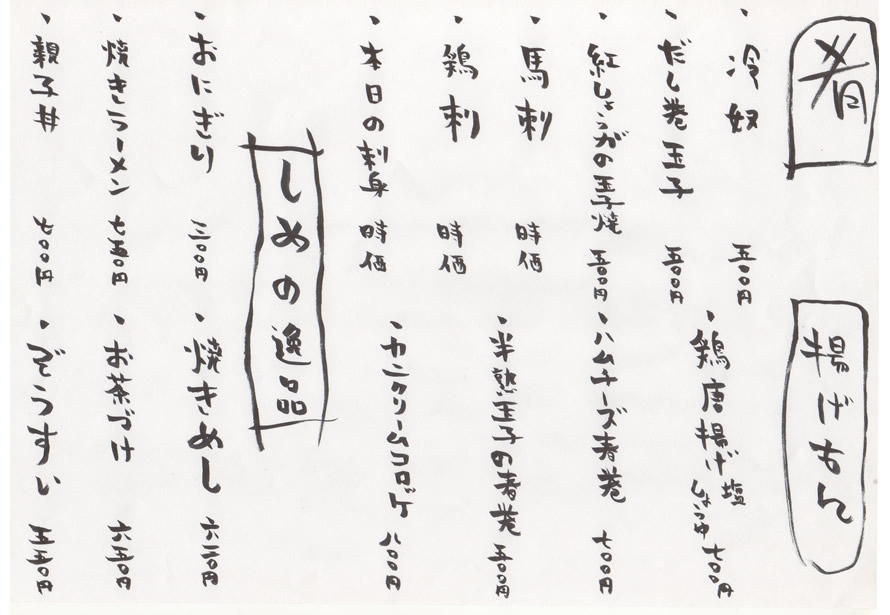 肴
・冷奴 五〇〇円
・だし巻玉子 五〇〇円
・紅しょうがの玉子焼 五〇〇円
・馬刺 時価
・鶏刺 時価
・本日の刺身 時価
揚げもん
・鶏唐揚げ 塩 しょうゆ 七〇〇円
・ハムチーズ春巻 七〇〇円
・半熟玉子の春巻 五〇〇円
・カニクリームコロッケ 八〇〇円
しめの逸品
・おにぎり 三〇〇円
・焼きラーメン 七五〇円
・親子丼 七〇〇円
・焼きめし 六二〇円
・お茶づけ 六五〇円
・ぞうすい 五五〇円